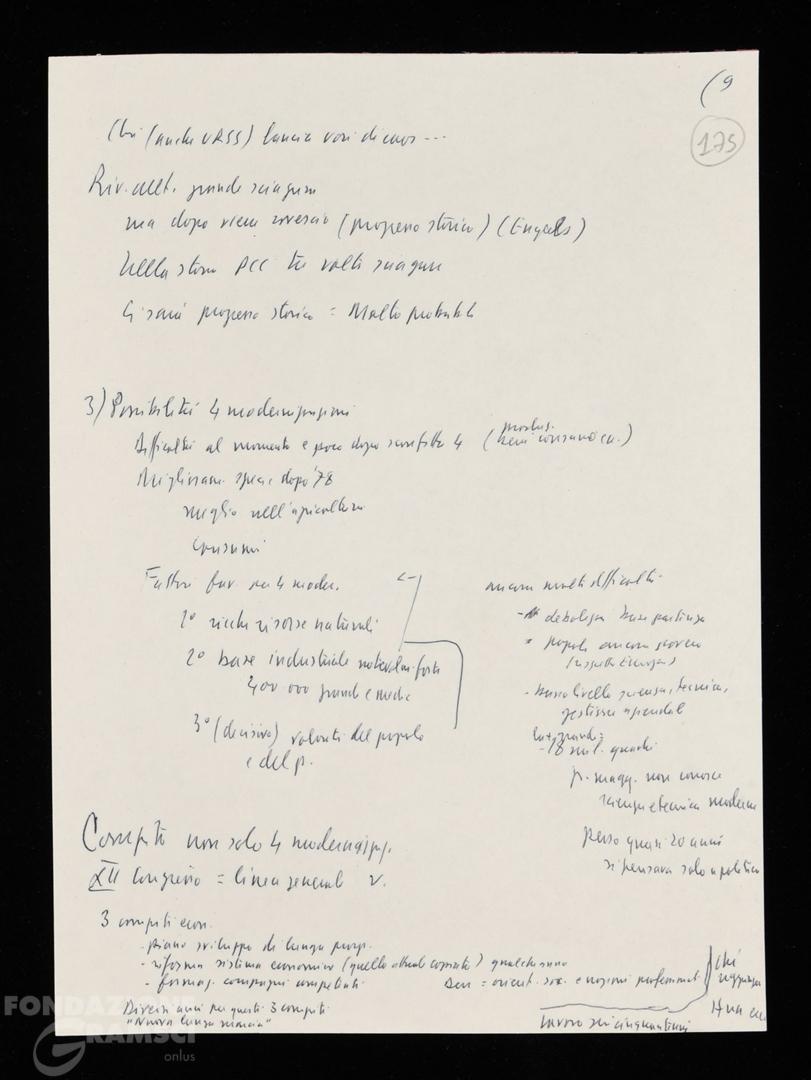 (9
175
Chi (anche URSS) lancia voci di caos ...
Riv. cult. grande sciagura
ma dopo viene rovescio (progresso storico) (Engels)
Nella storia PCC tre volte sciagure
Ci sarà progresso storico = Molto probabile
3) Possibilità 4 modernizzazioni
Difficoltà al momento e poco dopo sconfitta 4 (produz. beni consumo ecc.)
Miglioram. specie dopo '78
meglio nell'agricoltura
consumi
Fattori fav. su 4 moder.
1° ricche risorse naturali
2° base industriale notevolm. forte
400 000 grandi e medie
3° (decisivo) volontà del popolo
e del p.
ancora molte difficoltà
- debolezza base partenza
- popolo ancora povero
- basso livello scienza, tecnica,
gestione aziendale
- 18 mil. quadri
p. magg. non conosce
scienza e tecnica moderna
perso quasi 20 anni
si pensava solo a politica
Compiti non solo 4 modernizz.
XII Congresso = linea generale
3 compiti econ.
- piano sviluppo di lungo
- riforma sistema economico (quello attuale copiato) qualche anno
- formaz. compagni competenti
= orient. soc. e nozioni professionali
chi
Diversi anni per questi 3 compiti
"Nuova lunga marcia"
lavoro
FONDAZIONE
GRAMSCI
onlus